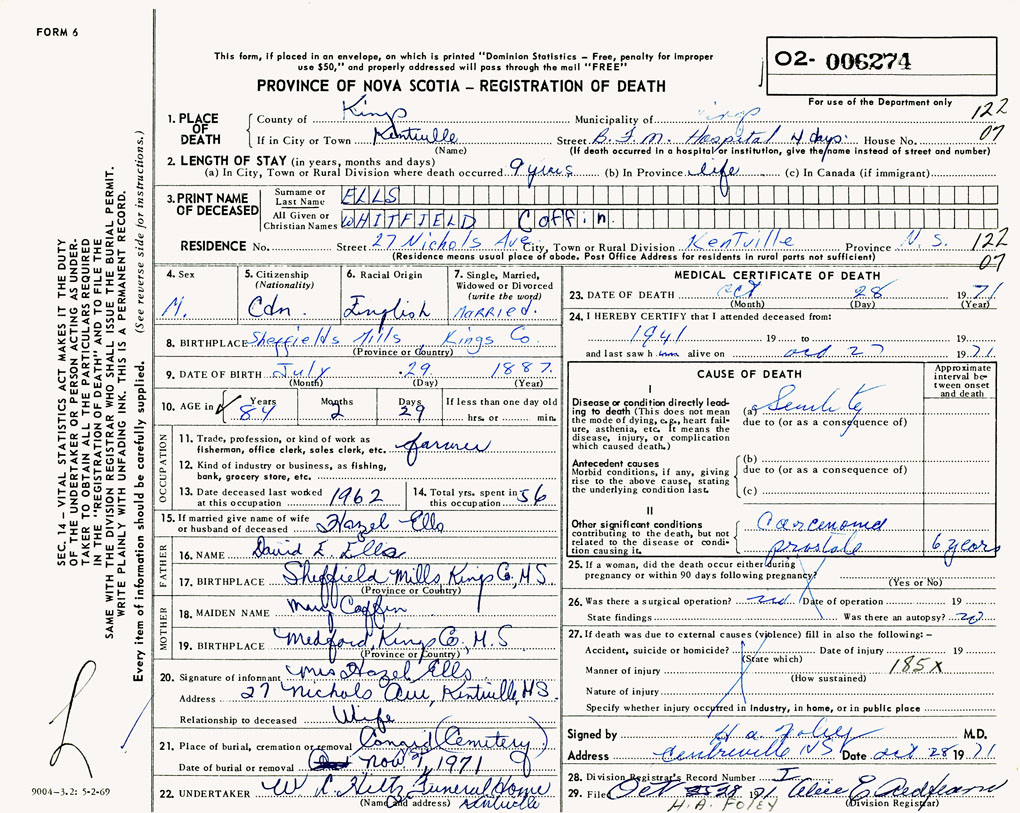 FORM 6
This form, if placed in an envelope, on which is printed "Dominion Statistics – Free, penalty for improper
use $50," and properly addressed will pass through the mail "FREE"
O2- 006274
PROVINCE OF NOVA SCOTIA – REGISTRATION OF DEATH
For use of the Department only
1. PLACE OF DEATH
County of Kings Municipality of Kings 122
If in City or Town Kentville Street B.F.M. Hospital 4 days. House No. 07
(Name) (If death occurred in a hospital or institution, give the name instead of street and number)
2. LENGTH OF STAY (in years, months and days)
(a) In City, Town or Rural Division where death occurred 9 years (b) In Province life (c) In Canada (if immigrant)
3. PRINT NAME OF DECEASED
Surname or Last Name ELLS
All Given or Christian Names WHITFIELD Coffin.
RESIDENCE No. Street 27 Nichols Ave. City, Town or Rural Division Kentville Province N.S. 122
(Residence means usual place of abode. Post Office Address for residents in rural parts not sufficient) 07
4. Sex M.
5. Citizenship (Nationality) Cdn.
6. Racial Origin English
7. Single, Married, Widowed or Divorced (write the word) Married.
8. BIRTHPLACE Sheffields Mills, Kings Co.
(Province or Country)
9. DATE OF BIRTH July 29 1887.
(Month) (Day) (Year)
10. AGE in Years 84 Months 2 Days 29 If less than one day old
hrs. or min.
OCCUPATION
11. Trade, profession, or kind of work as
fisherman, office clerk, sales clerk, etc. farmer
12. Kind of industry or business, as fishing,
bank, grocery store, etc.
13. Date deceased last worked at this occupation 1962
14. Total yrs. spent in this occupation 56
15. If married give name of wife
or husband of deceased Hazel Ells
FATHER
16. NAME David E. Ells
17. BIRTHPLACE Sheffield Mills, Kings Co, N.S
(Province or Country)
MOTHER
18. MAIDEN NAME Mary Coffin
19. BIRTHPLACE Medford, Kings Co., N.S
(Province or Country)
20. Signature of informant Mrs Hazel Ells
Address 27 Nichols Ave, Kentville, NS.
Relationship to deceased Wife
21. Place of burial, cremation or removal Congid (Cemetery)
Date of burial or removal Nov 1, 1971
22. UNDERTAKER W C Hiltz Funeral Home
(Name and address) Kentville
MEDICAL CERTIFICATE OF DEATH
23. DATE OF DEATH Oct 28 1971
(Month) (Day) (Year)
24. I HEREBY CERTIFY that I attended deceased from:
1941 19 to 19
and last saw him alive on Oct 27 1971.
CAUSE OF DEATH
Approximate interval between onset and death
I
Disease or condition directly leading to death (This does not mean the mode of dying, e.g., heart failure, asthenia, etc. It means the disease, injury, or complication which caused death.)
(a) Senility
due to (or as a consequence of)
Antecedent causes
Morbid conditions, if any, giving rise to the above cause, stating the underlying condition last.
(b)
due to (or as a consequence of)
(c)
II
Other significant conditions
contributing to the death, but not related to the disease or condition causing it.
Carcenoma
prostate 6 years
25. If a woman, did the death occur either during
pregnancy or within 90 days following pregnancy?
(Yes or No)
26. Was there a surgical operation? no Date of operation 19
State findings Was there an autopsy? no
27. If death was due to external causes (violence) fill in also the following: –
Accident, suicide or homicide? Date of injury 19
(State which)
Manner of injury 185X
(How sustained)
Nature of injury
Specify whether injury occurred in Industry, in home, or in public place
Signed by H A Foley M.D.
Address Centreville NS Date Oct 28 1971
28. Division Registrar's Record Number I
29. Filed Oct 28 1971 Alice E
H.A. FOLEY (Division Registrar)
SEC. 14 – VITAL STATISTICS ACT MAKES IT THE DUTY
OF THE UNDERTAKER OR PERSON ACTING AS UNDERTAKER
TO OBTAIN ALL THE PARTICULARS REQUIRED
IN THE "REGISTRATION OF DEATH" AND TO FILE THE
SAME WITH THE DIVISION REGISTRAR WHO SHALL ISSUE THE BURIAL PERMIT.
WRITE PLAINLY WITH UNFADING INK. THIS IS A PERMANENT RECORD.
Every item of information should be carefully supplied. (See reverse side for instructions.)
9004-3.2: 5-2-69